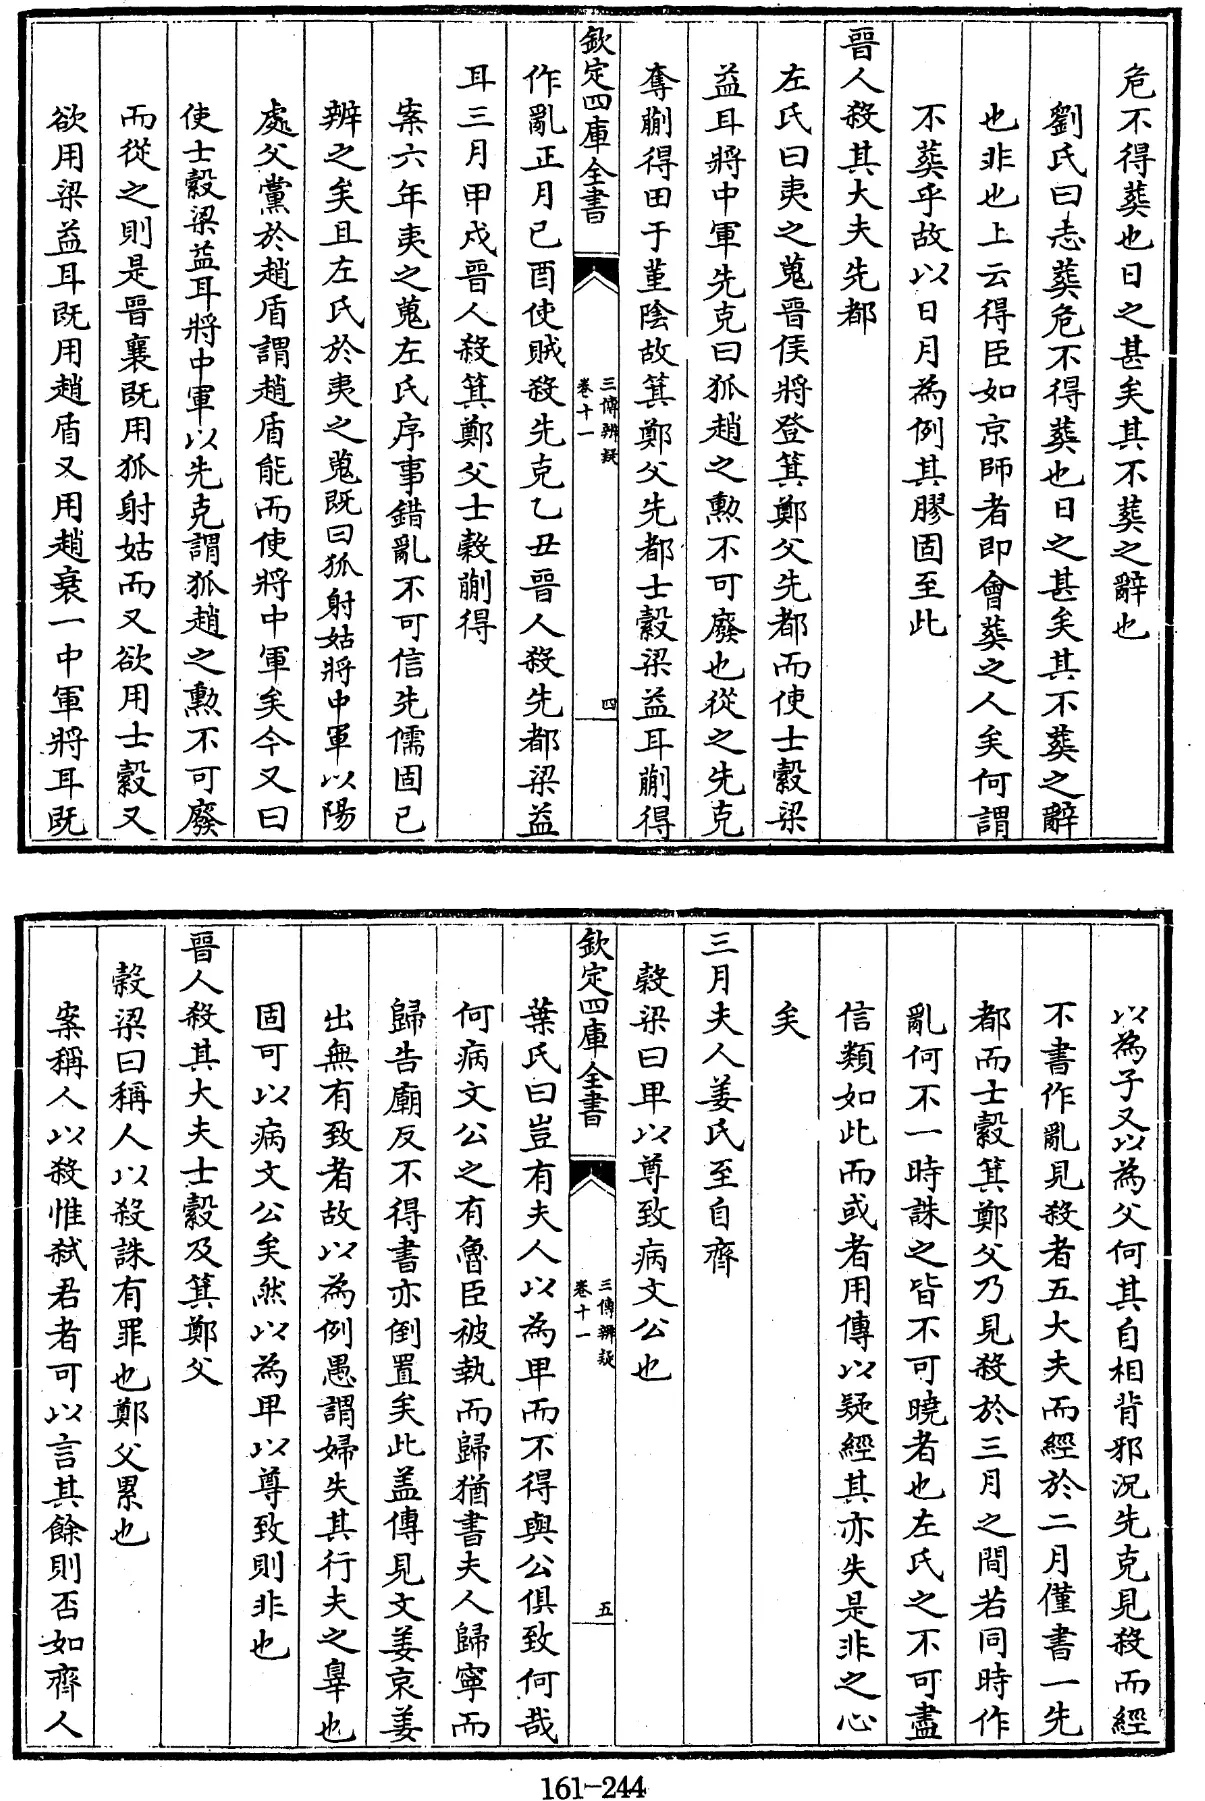 危不得葬也日之甚矣其不葬之辭也
劉氏曰志葬危不得葬也日之甚矣其不葬之辭
也非也上云得臣如京師者即會葬之人矣何謂
不葬乎故以日月為例其膠固至此
晉人殺其大夫先都
左氏曰夷之蒐晉侯將登箕鄭父先都而使士縠梁
益耳將中軍先克曰狐趙之勲不可廢也從之先克
奪蒯得田于堇陰故箕鄭父先都士縠梁益耳蒯得
欽定四庫全書
三傳辨疑
卷十一
四
作亂正月己酉使賊殺先克乙丑晉人殺先都梁益
耳三月甲戍晉人殺箕鄭父士縠蒯得
案六年夷之蒐左氏序事錯亂不可信先儒固已
辨之矣且左氏於夷之蒐既曰狐射姑將中軍以陽
處父黨於趙盾謂趙盾能而使將中軍矣今又曰
使士縠梁益耳將中軍以先克謂狐趙之勲不可廢
而從之則是晉襄既用狐射姑而又欲用士縠又
欲用梁益耳既用趙盾又用趙衰一中軍將耳既
以為子又以為父何其自相背邪況先克見殺而經
不書作亂見殺者五大夫而經於二月僅書一先
都而士縠箕鄭父乃見殺於三月之間若同時作
亂何不一時誅之皆不可曉者也左氏之不可盡
信類如此而或者用傳以疑經其亦失是非之心
矣
三月夫人姜氏至自齊
穀梁曰卑以尊致病文公也
欽定四庫全書
三傳辨疑
卷十一
五
葉氏曰豈有夫人以為卑而不得與公俱致何哉
何病文公之有魯臣被執而歸猶書夫人歸寧而
歸告廟反不得書亦倒置矣此盖傳見文姜哀姜
出無有致者故以為例愚謂婦失其行夫之辠也
固可以病文公矣然以為卑以尊致則非也
晉人殺其大夫士縠及箕鄭父
穀梁曰稱人以殺誅有罪也鄭父累也
案稱人以殺惟弑君者可以言其餘則否如齊人
161-244